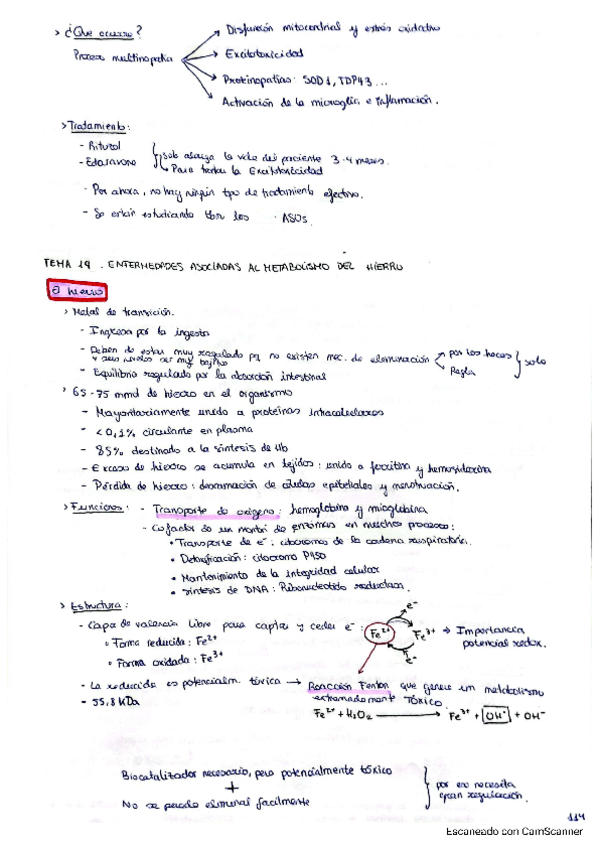 > ¿Que ocurre?
Proceso multinopatia
Disfunción mitocondrial y estrés oxidativo
Excitotoxicidad
Proteinopatías: SOD1, TDP43 ...
Activación de la microglía e inflamación.
> Tratamiento:
- Rituzol
- Edaravone
solo alarga la vida del paciente 3-4 meses.
Para tratar la Excitotoxicidad
- Por ahora, no hay ningún tipo de tratamiento efectivo.
- Se están estudiando con los ASOs.
TEMA 19. ENFERMEDADES ASOCIADAS AL METABOLISMO DEL HIERRO
El hierro
> Metal de transición.
- Ingresa por la ingesta
- Deben de estar muy regulado pq no existen mec. de eliminación
y sus niveles ser muy bajitos
por las heces
Regla
solo
- Equilibrio regulado por la absorción intestinal
> 65-75 mmd de hierro en el organismo
- Mayoritariamente unido a proteínas intracelulares
- <0,1% circulante en plasma
- 85% destinado a la síntesis de Hb
- Exceso de hierro se acumula en tejidos: unido a ferritina y hemosiderina
- Pérdida de hierro: descamación de células epiteliales y menstruación.
> Funciones: - Transporte de oxígeno: hemoglobina y mioglobina
- Cofactor de un montón de enzimas en muchos procesos:
• Transporte de e-: citocromos de la cadena respiratoria.
• Detoxificación: citocromo P450
• Mantenimiento de la integridad celular
• Síntesis de DNA: Ribonucleótido reductasa.
> Estructura:
- Capa de valencia libre para captar y ceder e-:
• Forma reducida: Fe2+
• Forma oxidada: Fe3+
e-
Fe2+
Fe3+
e-
→ Importancia
potencial redox.
- La reducida es potencialm. tóxica → Reacción Fenton que genera un metabolismo
extremadamente tóxico.
- 55,8 KDa
Fe2+ + H2O2 → Fe3+ + OH· + OH-
Biocatalizador necesario, pero potencialmente tóxico
+
No se puede eliminar facilmente
por eso necesita
gran regulación.
114
Escaneado con CamScanner